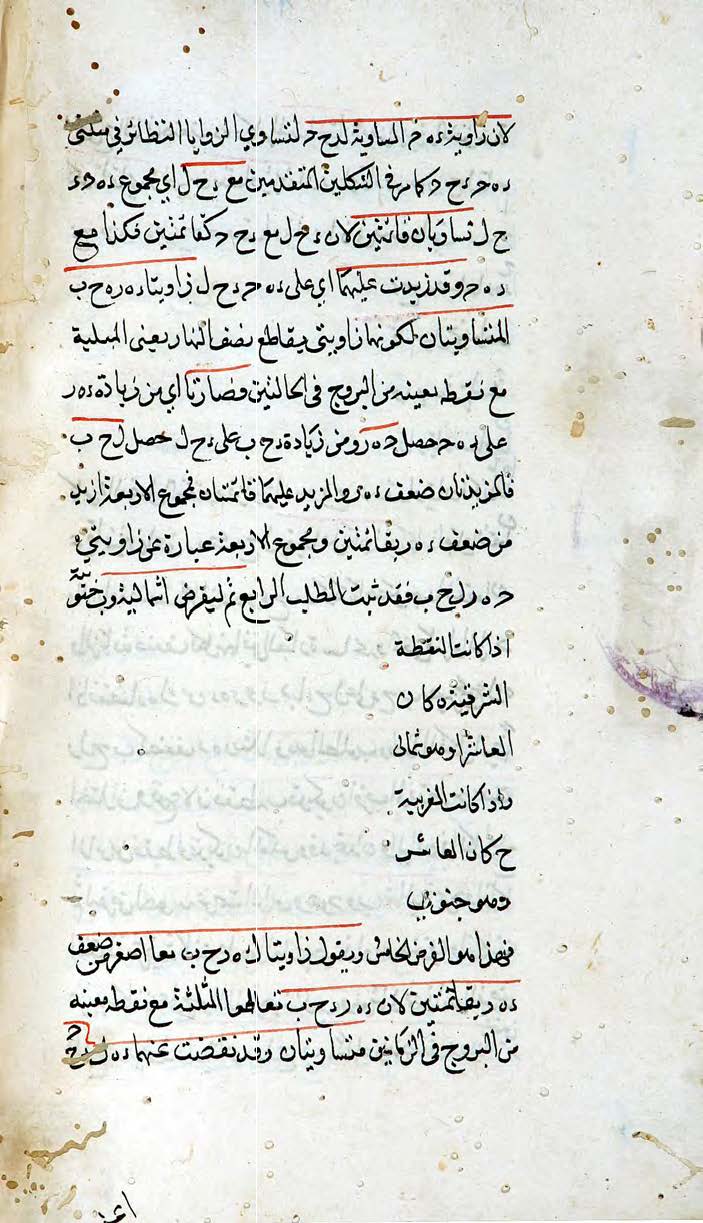 لان زاوية ء ه ح المساوية لدح ح لتساوي الزوايا النظائر في مثلثي
ء ه ح ء ح كما مر في الشكلين المتقدمين مع ء ح ل اي مجموع ء ه ح ء
ح ل تساويان قائمتين لان ء ح ل مع ء ح ح كقائمتين فكذا مع
ء ه ح وقد زيدت عليهما اي على ء ه ح ء ح ل زاويتا ء ه ر ء ح ب
المتساويتان لكونهما زاويتي تقاطع نصف النهار يعنى الميلية
مع نقطة بعينها من البروج في الحالتين وصارتا اي من زيادة ء ه ر
على ء ه ح حصل ح ه ر ومن زيادة ء ح ب على ء ح ل حصل ل ح ب
فالمزيدتان ضعف ء ه ر والمزيد عليهما قائمتان فمجموع الاربعة ازيد
من ضعف ء ه ر بقائمتين ومجموع الاربعة عبارة عن زاويتي
ح ه ر ل ح ب فقد ثبت المطلب الرابع ثم ليفرض ا شمالية و ب جنوبية
اذا كانت النقطة
الشرقية ه كان
العاشر ا وهو شمالى
واذا كانت الغربية
ح كان العاشر
ب وهو جنوبي
فهذا هو الفرض الخامس ويقول زاويتا ل ه ر ح ب معا اصغر من ضعف
ء ه ر بقائمتين لان ء ه ر ء ح ب تقاطعا المثلثة مع نقطة بعينها
من البروج في الزمانين متساويتان وقد نقصت عنهما ء ه ل ء ح
اعنى